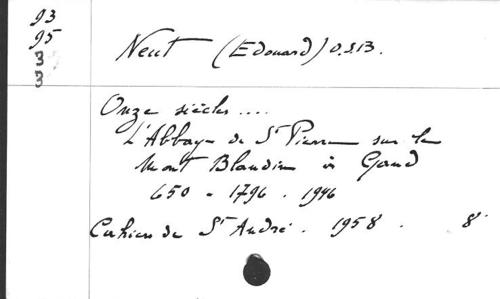 93
95
3
3
Neut (Edouard) O.S.B.
Onze siècles....
L'Abbaye de St Pierre sur le
Mont Blandin à Gand
650 - 1796 - 1946
Cahiers de St André. 1958. 8°